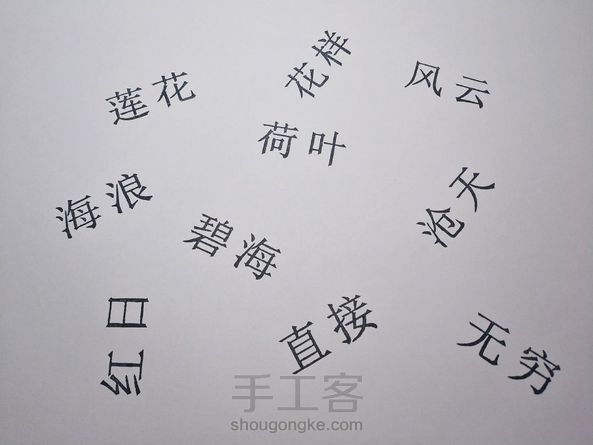 花样
风云
莲花
荷叶
沧天
海浪
碧海
红日
直接
无穷
手工客
shougongke.com